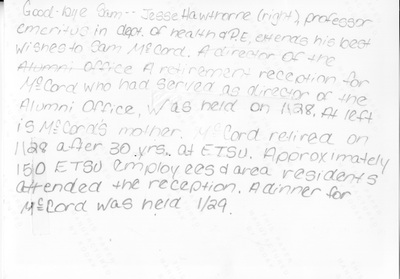 Good-bye Sam-- Jesse Hawthorne (right), professor
emeritus in dept. of health & PE, extends his best
wishes to Sam McCord. A director of the
Alumni Office A retirement reception for
McCord who had served as director of the
Alumni Office, was held on 1\28. At left
is McCord's mother. McCord retired on
1\28 after 30 yrs. at ETSU. Approximately
150 ETSU employees & area residents
attended the reception. A dinner for
McCord was held 1/29.